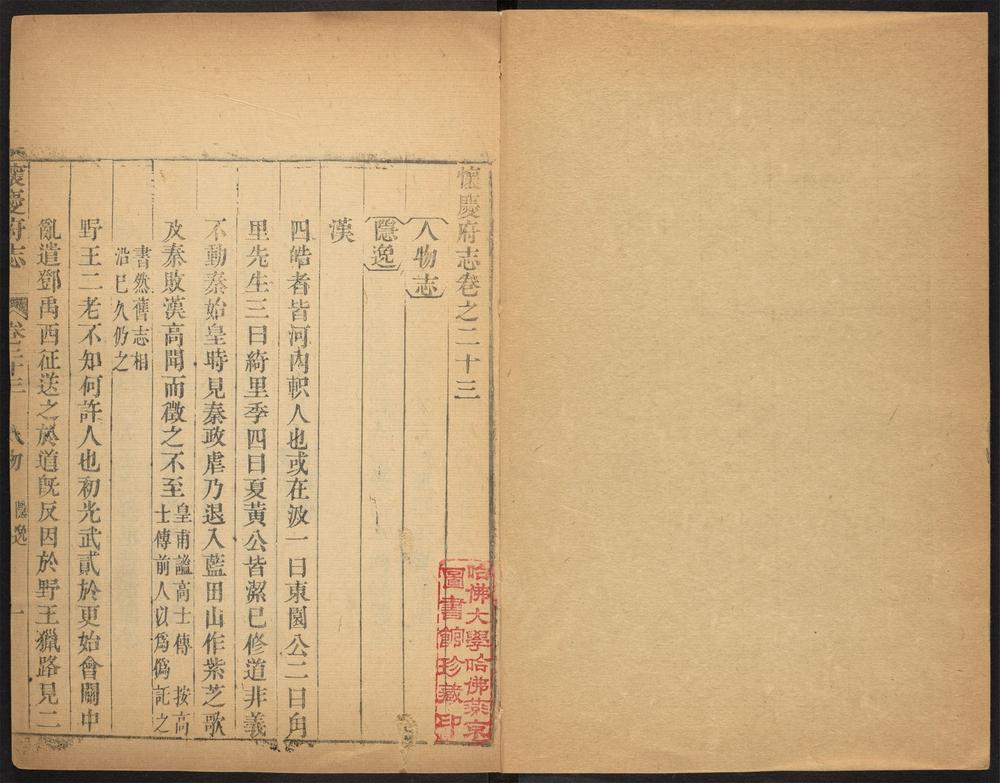 懷慶府志卷之二十三
人物志
隱逸
漢
四皓者皆河內軹人也或在汲一曰東園公二曰角
里先生三曰綺里季四曰夏黃公皆潔已修道非義
不動秦始皇時見秦政虐乃退入藍田山作紫芝歌
及秦敗漢高聞而徵之不至皇甫謐高士傳 按高
士傳前人以爲僞託之
書然舊志相
沿已久仍之
野王二老不知何許人也初光武貳於更始會關中
亂遣鄧禹西征送之於道旣反因於野王獵路見二
懷慶府志 卷二十三 人物 隱逸 一
哈佛大學哈佛燕京
圖書館珍藏印